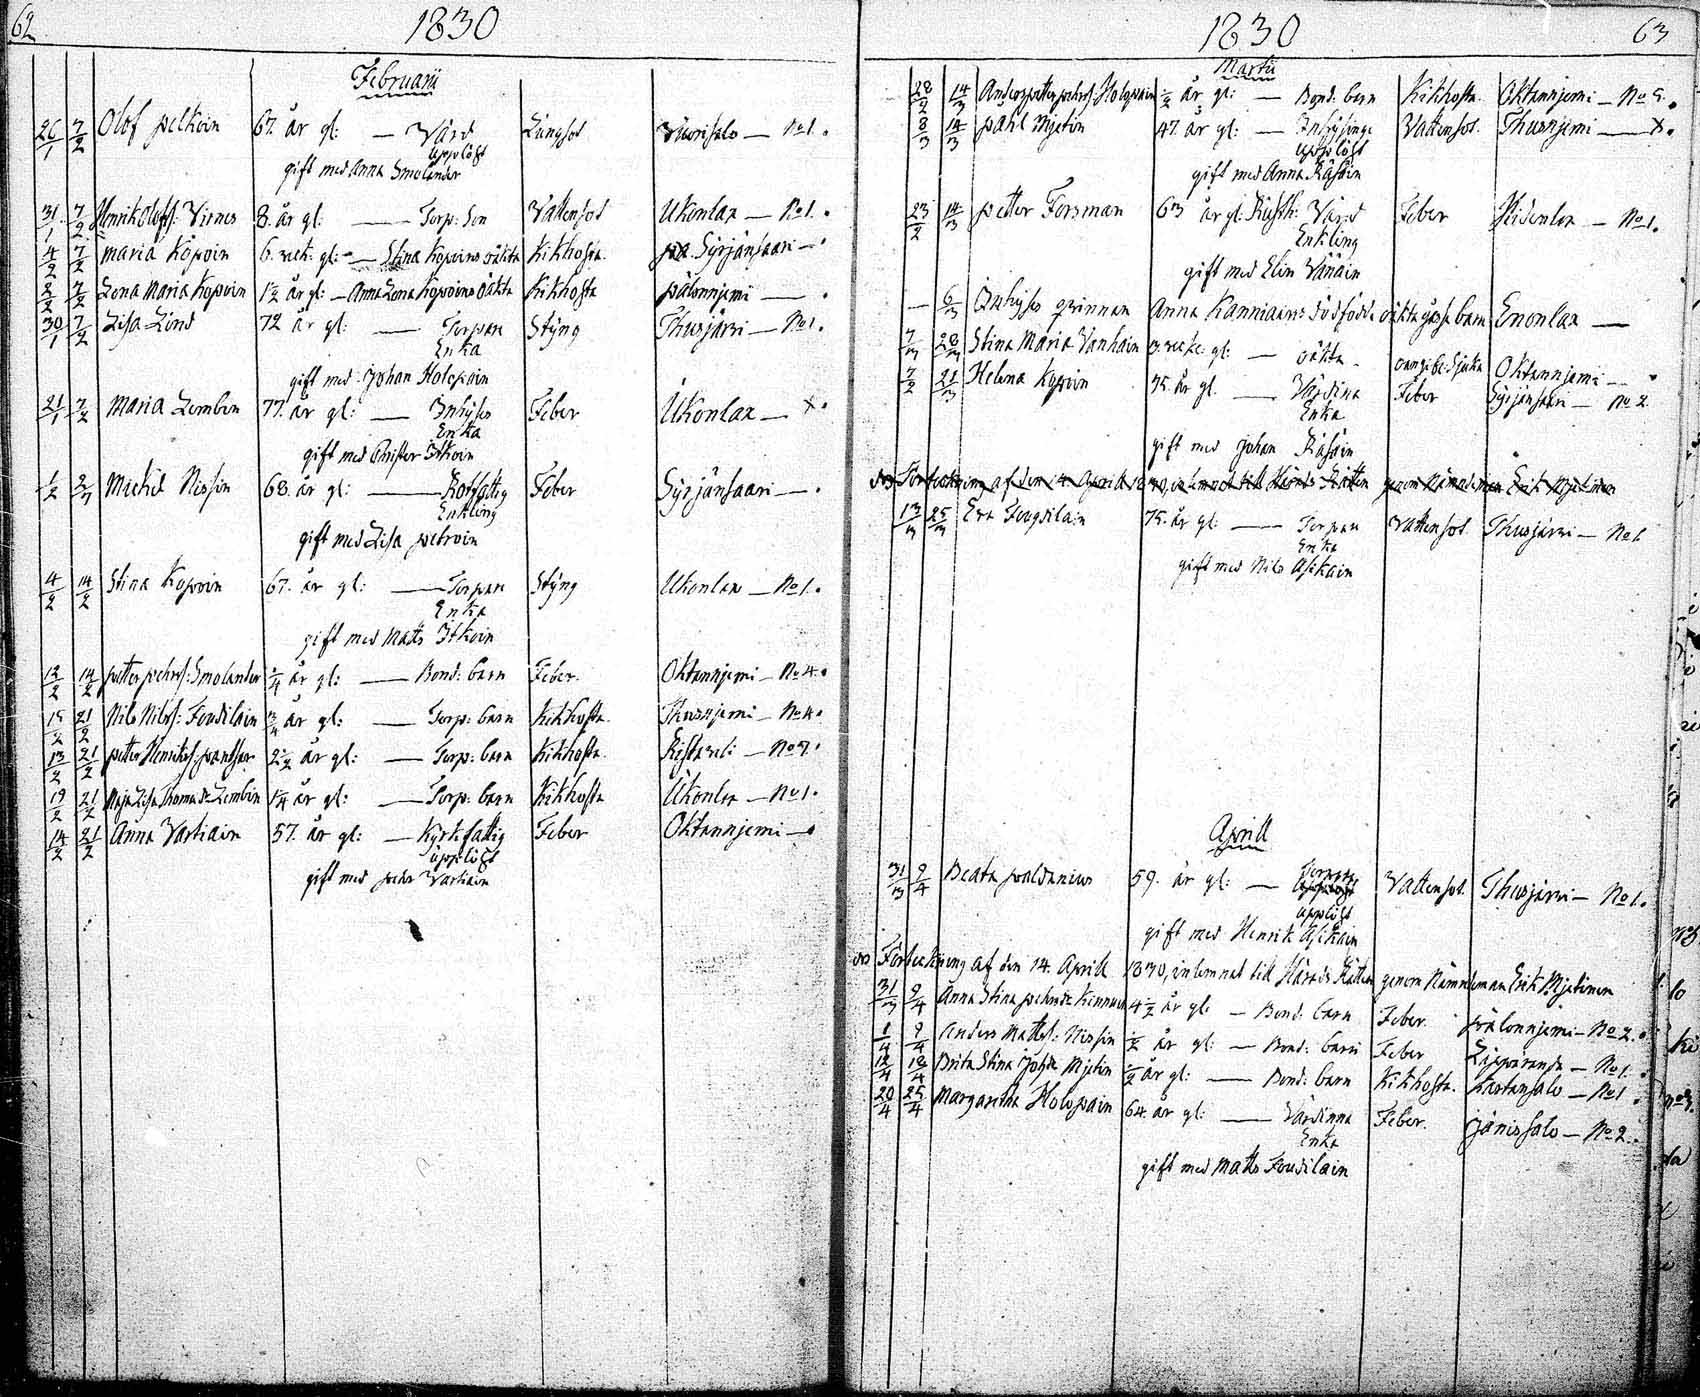 62
1830
Februarii
26/1 7/2 Olof Pelkoin 67. år gl: — Värd Lungsot — No 1.
Upplöst
gift med Anna Smolander
31/1 7/2 Henrik Olofs: Virnes 8. år gl: — Torp: Son Vattensot Ukonlax — No 1.
4/2 7/2 Maria Kopoin 6. veck: gl: — Stina Kopoins oäkta Kikhosta Syrjänsaari —
2/2 7/2 Lena Maria Kopoin 1 1/2 år gl: — Anna Lena Kopoins oäkta Kikhosta Pålonnjemi —
30/1 7/2 Lisa Lind 72 år gl: — Torpare Styng Thusjärvi — No 1.
Enka
gift med Johan Holopain
21/1 7/2 Maria Lembin 77. år gl: — Inhyses Feber Ukonlax — x.
Enka
gift med Christer Itkoin
Michel Nissin 68. år gl: — Rotfattig Feber Syrjänsaari —
Enkling
gift med Lisa Petroin
4/2 14/2 Stina Kopoin 67. år gl: — Torpare Styng Ukonlax — No 1.
Enka
gift med Matts Itkoin
12/2 14/2 Petter Pehrs: Smolander 1/4 år gl: — Bond: barn Feber. Oktannjemi — No 4.
15/2 21/2 Nils Nilss: Foudilain 3/4 år gl: — Torp: barn Kikhosta. Thusnjemi — No 4.
13/2 21/2 Petter Henriks: Pantsar 2 1/2 år gl: — Torp: barn Kikhosta.
19/2 21/2 Maja Lisa Thomæ Dr Lembin 1 1/4 år gl: — Torp: barn Kikhosta Ukonlax — No 1.
14/2 21/2 Anna Vartiain 57. år gl: — Kyrkfattig Feber Oktannjemi —
Upplöst
gift med Pehr Vartiain
1830
63
Martii
28/2 14/3 Anders Petter Pehrs: Holopain 1/2 år gl: — Bond: barn Kikhosta. Oktannjemi — No 5.
8/3 14/3 Påhl Mjetin 47. år gl: — Inhysinge Vattensot. Thusnjemi — x.
Upplöst
gift med Anna Räsöin
23/2 14/3 Petter Forsman 63 år gl: Värd Feber — No 1.
Enkling
gift med Elin Vänäin
— 6/3 Inhyses Qvinnan Anna Kanniains dödfödde oäkta gosse barn Enonlax —
7/3 28/3 Stina Maria Vanhain 3. veck: gl: — oäkta — oangifl: Sjukd: Oktannjemi —
7/2 21/3 Helena Kopoin 75. år gl. — Värdina Feber Syrjänsaari — No 2.
Enka
gift med Johan Räsöin
Förteckning af den 14. Aprill 1830, inlemnat till Härads Rätten genom Nämndeman Erik Mjetinen
13/3 25/3 Eva Foudilain 75. år gl: — Torpare Vattensot Thusjärvi — No 1
Enka
gift med Nils Asikain
Aprill
31/3 9/4 Beata Paldanius 59. år gl: — Vattensot. Thusjärvi — No 1.
Upplöst
gift med Henrik Asikain
Förteckning af den 14. Aprill 1830, inlemnat till Härads Rätten genom Nämndeman Erik Mjetinen
31/3 9/4 Anna Stina Pehrs Dr Kinnuin 4 1/2 år gl: — Bond: barn Feber. Pålonnjemi — No 2.
1/4 9/4 Anders Matts: Nissin 1/2 år gl: — Bond: barn Feber — No 1.
12/4 18/4 Brita Stina Johs Dr Mjetin 1/2 år gl: — Bond: barn Kikhosta. Kartansalo — No 1
20/4 25/4 Margaretha Holopain 64. år gl: — Värdinna Feber. Jänissalo — No 2.
Enka
gift med Matts Foudilain